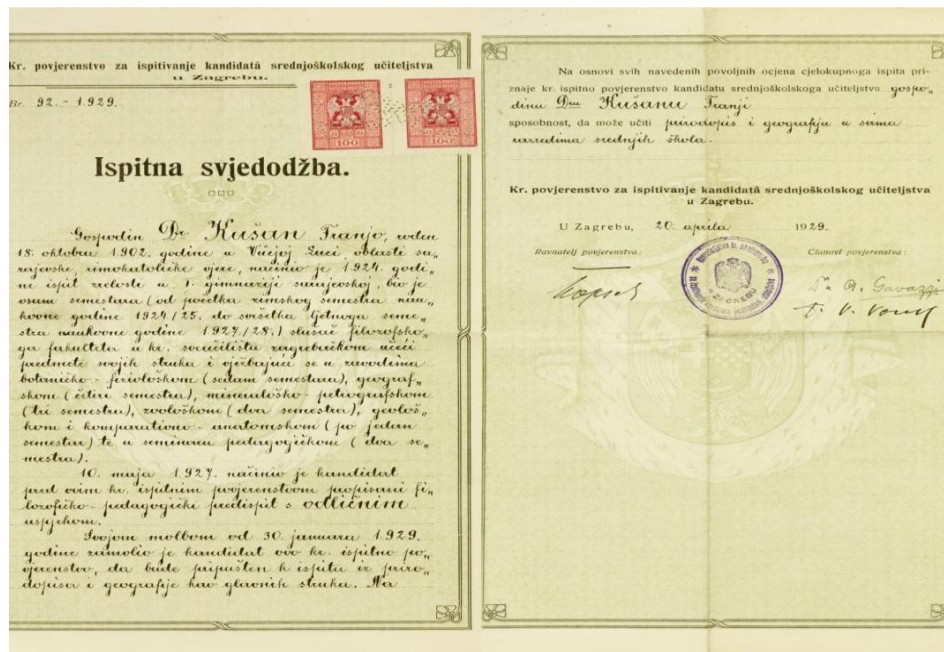 Kr. povjerenstvo za ispitivanje kandidatâ srednjoškolskog učiteljstva
u Zagrebu.
Br. 92. - 1929.
100
100
Ispitna svjedodžba.
Gospodin Dr. Kušan Franjo, rođen
18. oktobra 1902. godine u Vučjoj Luci, oblasti sa„
rajevske, rimokatoličke vjere, načinio je 1924. godi„
ne ispit zrelosti u I. gimnaziji sarajevskoj, bio je
osam semestara (od početka zimskog semestra nau„
kovne godine 1924/25. do svršetka ljetnoga seme„
stra naukovne godine 1927/28.) slušač filozofsko„
ga fakulteta u kr. sveučilištu zagrebačkom učeći
predmete svojih struka i vježbajući se u zavodima
botaničko - fiziološkom (sedam semestara), geograf„
skom (četiri semestra), mineraloško - petrografskom
(tri semestra), zoološkom (dva semestra), geološ„
kom i komparativno - anatomskom (po jedan
semestar) te u seminaru pedagogičkom (dva se„
mestra).
10. maja 1927. načinio je kandidat
pred ovim kr. ispitnim povjerenstvom propisani fi„
lozofičko - pedagogički predispit s odličnim
uspjehom.
Svojom molbom od 30. januara 1929.
godine zamolio je kandidat ovo kr. ispitno po„
vjerenstvo, da bude pripušten k ispitu iz priro„
dopisa i geografije kao glavnih struka. Na
Na osnovi svih navedenih povoljnih ocjena cjelokupnoga ispita pri-
znaje kr. ispitno povjerenstvo kandidatu srednjoškolskoga učiteljstva gospo„
dinu Dru Kušanu Franji
sposobnost, da može učiti prirodopis i geografiju u svima
razredima srednjih škola.
Kr. povjerenstvo za ispitivanje kandidatâ srednjoškolskog učiteljstva
u Zagrebu.
U Zagrebu, 20. aprila 1929.
Ravnatelj povjerenstva: Članovi povjerenstva:
Dr. A. Gavazzi